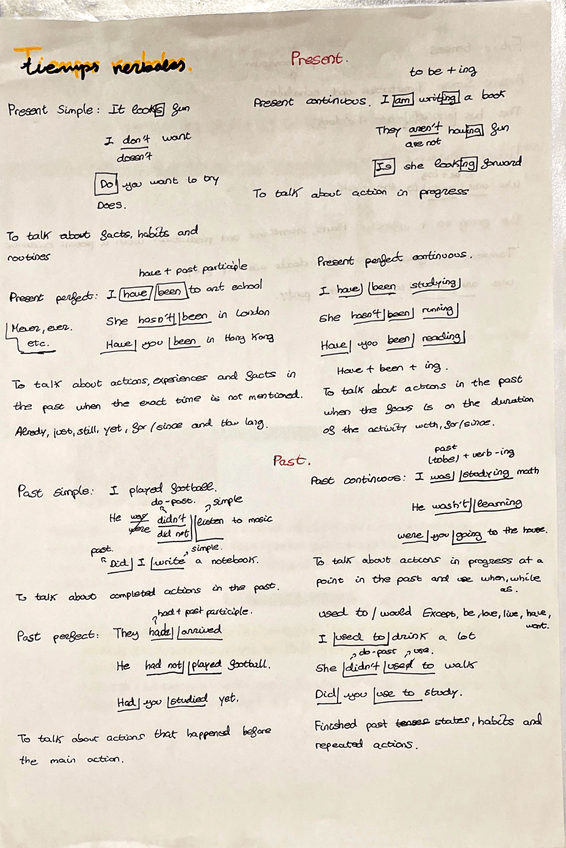 Tiemps verbales.
Present.
Present Simple: It looks fun
I don't want
doesn't
Do you want to try
Does.
To talk about facts, habits and
routines
to be + ing
Present continuous. I am writing a book
They aren't having fun
are not
Is she looking forward
To talk about action in progress
have + past participle
Present perfect: I have been to art school
She hasn't been in London
Have you been in Hong Kong
Never, ever.
etc.
To talk about actions, experiences and facts in
the past when the exact time is not mentioned.
Already, just, still, yet, for/since and How long.
Present perfect continuous.
I have been studying
She hasn't been running
Have you been reading
Have + been + ing.
To talk about actions in the past
when the focus is on the duration
of the activity with, for/since.
Past.
Past simple: I played football.
do-past. simple
He was didn't listen to music
were did not
past. simple.
Did I write a notebook.
To talk about completed actions in the past.
past
(tobe) + verb-ing
Past continuous: I was studying math
He wasn't learning
were you going to the house.
To talk about actions in progress at a
point in the past and use when, while
as.
had + past participle.
Past perfect: They had arrived
He had not played football.
Had you studied yet.
To talk about actions that happened before
the main action.
used to / would Except, be, love, live, have,
want.
I used to drink a lot
do-past use.
She didn't used to walk
Did you use to study.
Finished past tenses states, habits and
repeated actions.